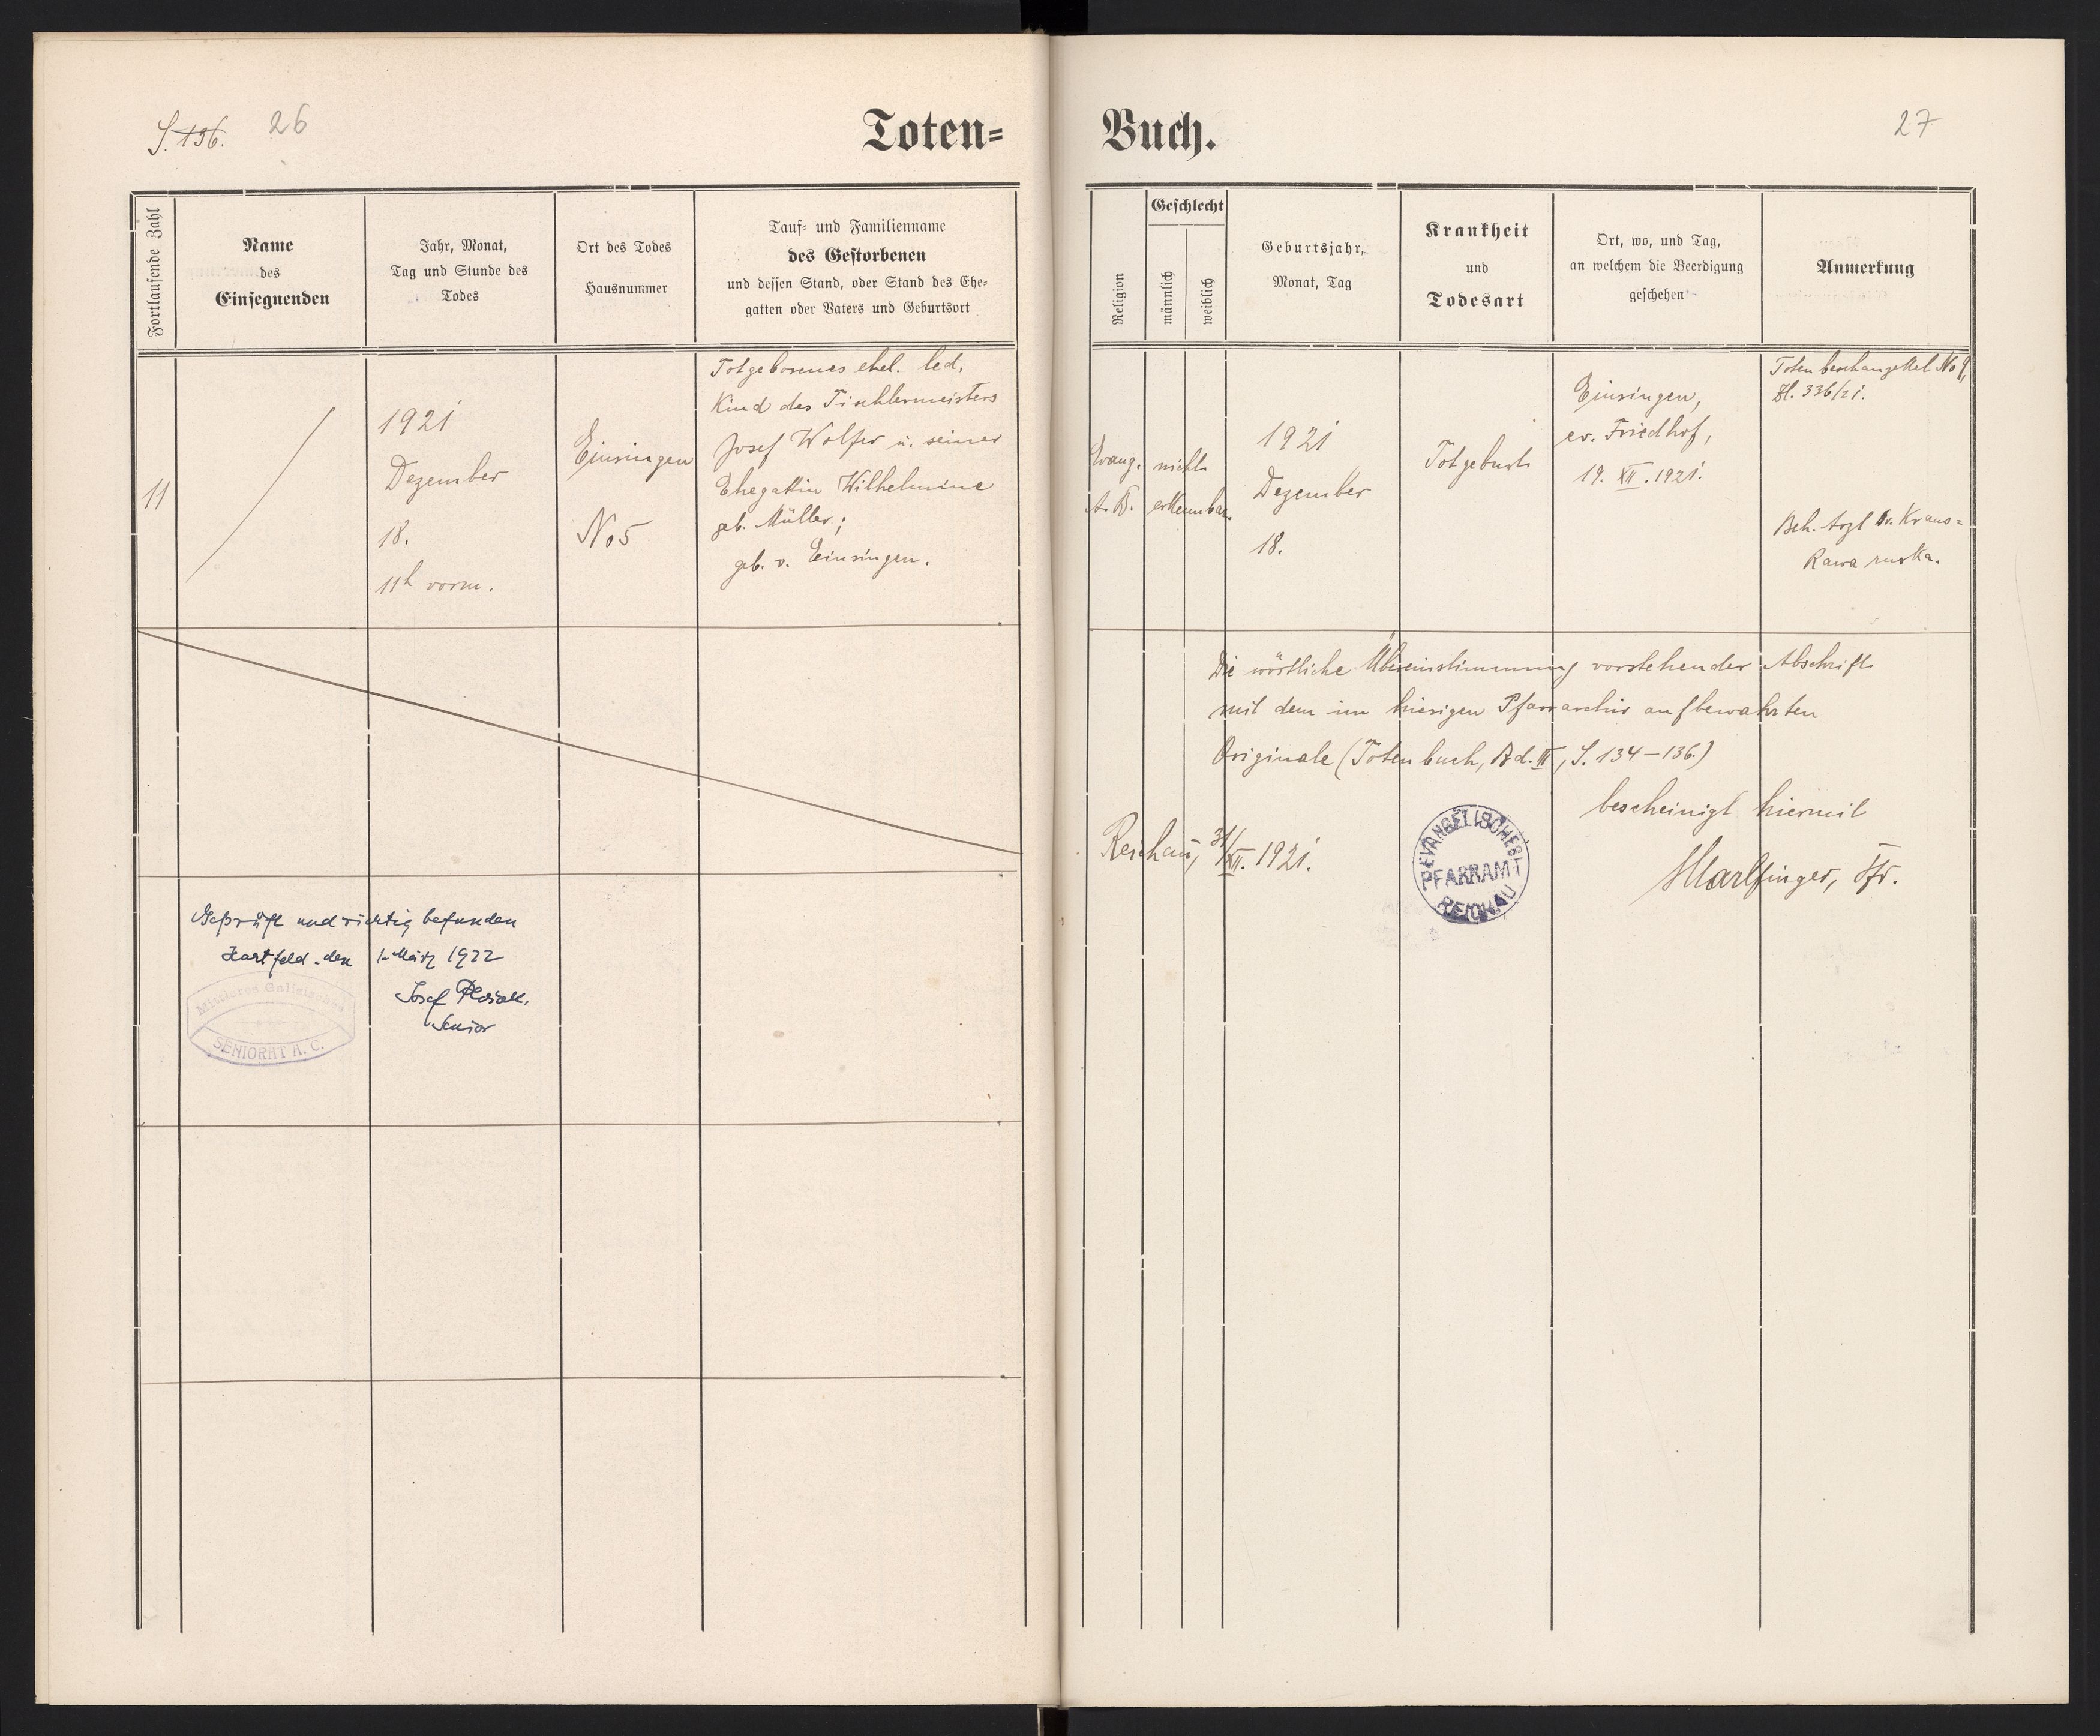 S. 136. 26
Toten=
Fortlaufende Zahl
Name
des
Einsegnenden
Jahr, Monat,
Tag und Stunde des
Todes
Ort des Todes
Hausnummer
Tauf= und Familienname
des Gestorbenen
und dessen Stand, oder Stand des Ehe=
gatten oder Vaters und Geburtsort
11
1921
Dezember
18.
11h vorm.
Einsingen
No 5
Totgeborenes ehel. led.
Kind des Tischlermeisters
Josef Wolfer u. seiner
Ehegattin Wilhelmine
geb. Müller;
geb. v. Einsingen.
Geprüft und richtig befunden
Hartfeld, den 1. März 1922
Josef
Senior
Mittleres Galizisches
SENIORAT A. C.
Buch.
27
Religion
Geschlecht
männlich
weiblich
Geburtsjahr,
Monat, Tag
Krankheit
und
Todesart
Ort, wo, und Tag,
an welchem die Beerdigung
geschehen
Anmerkung
Evang.
A. B.
nicht
erkennbar.
1921
Dezember
18.
Totgeburt
Einsingen,
ev. Friedhof,
19. XII. 1921.
Totenbeschauzettel No 9,
Zl. 336/21.
Beh. Arzt Dr. Kraus=
Rawa ruska.
Die wörtliche Übereinstimmung vorstehender Abschrift
mit dem im hiesigen Pfarrarchiv aufbewahrten
Originale (Totenbuch, Bd. III, S. 134–136.)
bescheinigt hiermit
Reichau, 31/XII. 1921.
EVANGELISCHES
PFARRAMT
REICHAU
Marlfinger, Pfr.